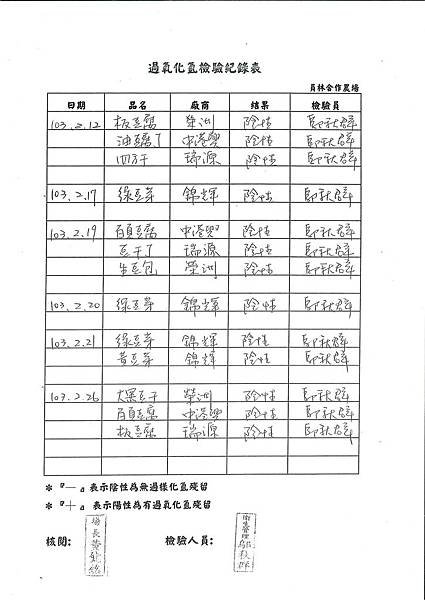 過氧化氫檢驗紀錄表
員林合作農場
日期 品名 廠商 結果 檢驗員
103.2.12 板豆腐 榮洲 陰性 邱秋辟
油豆腐丁 中港興 陰性
四方干 瑞源 陰性
103.2.17 綠豆芽 錦輝 陰性
103.2.19 百頁豆腐 中港興 陰性
豆干丁 瑞源 陰性
生豆包 榮洲 陰性
103.2.20 綠豆芽 錦輝 陰性
103.2.21 綠豆芽 錦輝 陰性
黃豆芽 錦輝 陰性
103.2.26 大黑豆干 榮洲 陰性
百頁豆腐 中港興 陰性
板豆腐 瑞源 陰性
＊『－』表示陰性為無過樣化氫殘留
＊『＋』表示陽性為有過氧化氫殘留
核閱： 檢驗人員：
場長黃
衛生管理